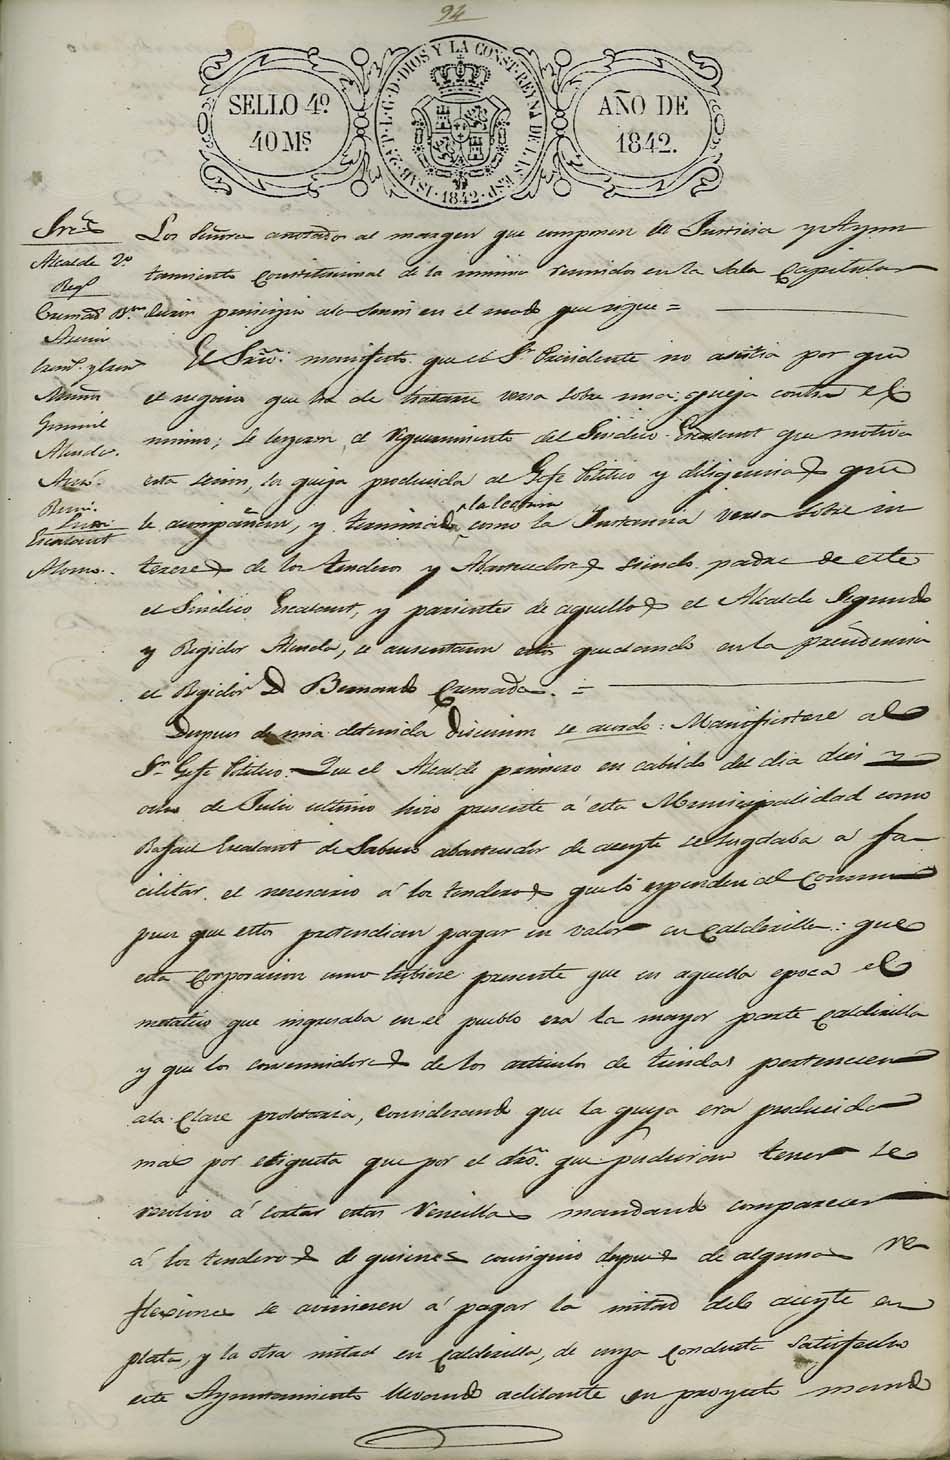 94
SELLO 4º
40 Ms
ISAB. 2ª P. L. G. D. DIOS Y LA CONST. REYNA DE LAS ESP.
1842
AÑO DE
1842.
Sres
Alcalde 2º
Regs
Cremads Brno
Gomiul
Escalant
Alonso.
Los Señores anotados al margen que componen el Justicia y Ayun
tamiento Constitucional de la misma reunidos en la Sala Capitular
dieron principio ala sesion en el modo que sigue =
El Srio. manifesto que el Sr Presidente no asistia por que
el negocio que ha de tratarse versa sobre una queja contra el
mismo; se leyeron el requerimiento del Sindico Escalant que motiva
esta sesion, la queja producida al Gefe Politico y diligencias que
le acompañan, y terminada la lectura como la Instancia versa sobre in
tereses de los tenderos y Abastecedores siendo padre de este
el Sindico Escalant, y parientes de aquellos el Alcalde Segundo
y Regidor, se ausentaron estos quedando en la presidencia
el Regidor D Bernardo Cremades. =
Despues de una detenida discusion se acordo: Manifiestese al
Sr Gefe Politico. Que el Alcalde primero en cabildo del dia diez y
ocho de Julio ultimo hizo presente á esta Municipalidad como
Rafael Escalant abastecedor de aceyte se negaba a fa-
cilitar el necesario á los tenderos que lo espenden al Comun
pues que estos pretendian pagar su valor en Calderilla: que
esta Corporacion como tubiese presente que en aquella epoca el
metalico que ingresaba en el pueblo era la mayor parte Calderilla
y que los consumidores de los articulos de tiendas pertenecen
ala Clase proletaria, considerando que la queja era producida
mas por etiqueta que por el dro. que pudieran tener se
resolvio á cortar estas rencillas mandando comparecer
á los tenderos de quienes consiguio despues de algunas re
flexiones se aviniesen á pagar la mitad del aceyte en
plata, y la otra mitad en Calderilla, de cuya conducta satisfecho
este Ayuntamiento llevando adelante su proyecto mando